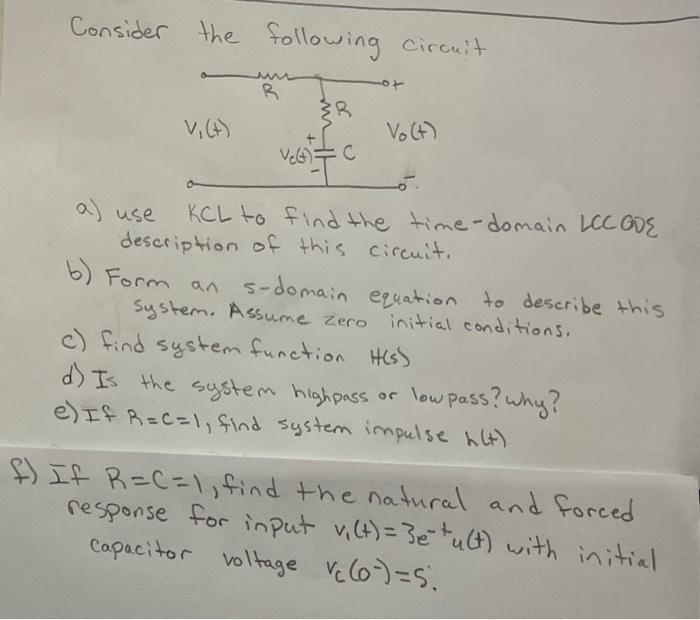 Consider the following circuit
R
+
R
V₁(t)
V₀(t)
+
Vc(t)
C
-
-
a) use KCL to find the time-domain LCCODE
description of this circuit.
b) Form an s-domain equation to describe this
system. Assume zero initial conditions.
c) find system function H(s)
d) Is the system highpass or lowpass? why?
e) If R=C=1, find system impulse h(t)
f) If R=C=1, find the natural and forced
response for input v₁(t)=3e⁻ᵗu(t) with initial
capacitor voltage vc(0⁻)=5.